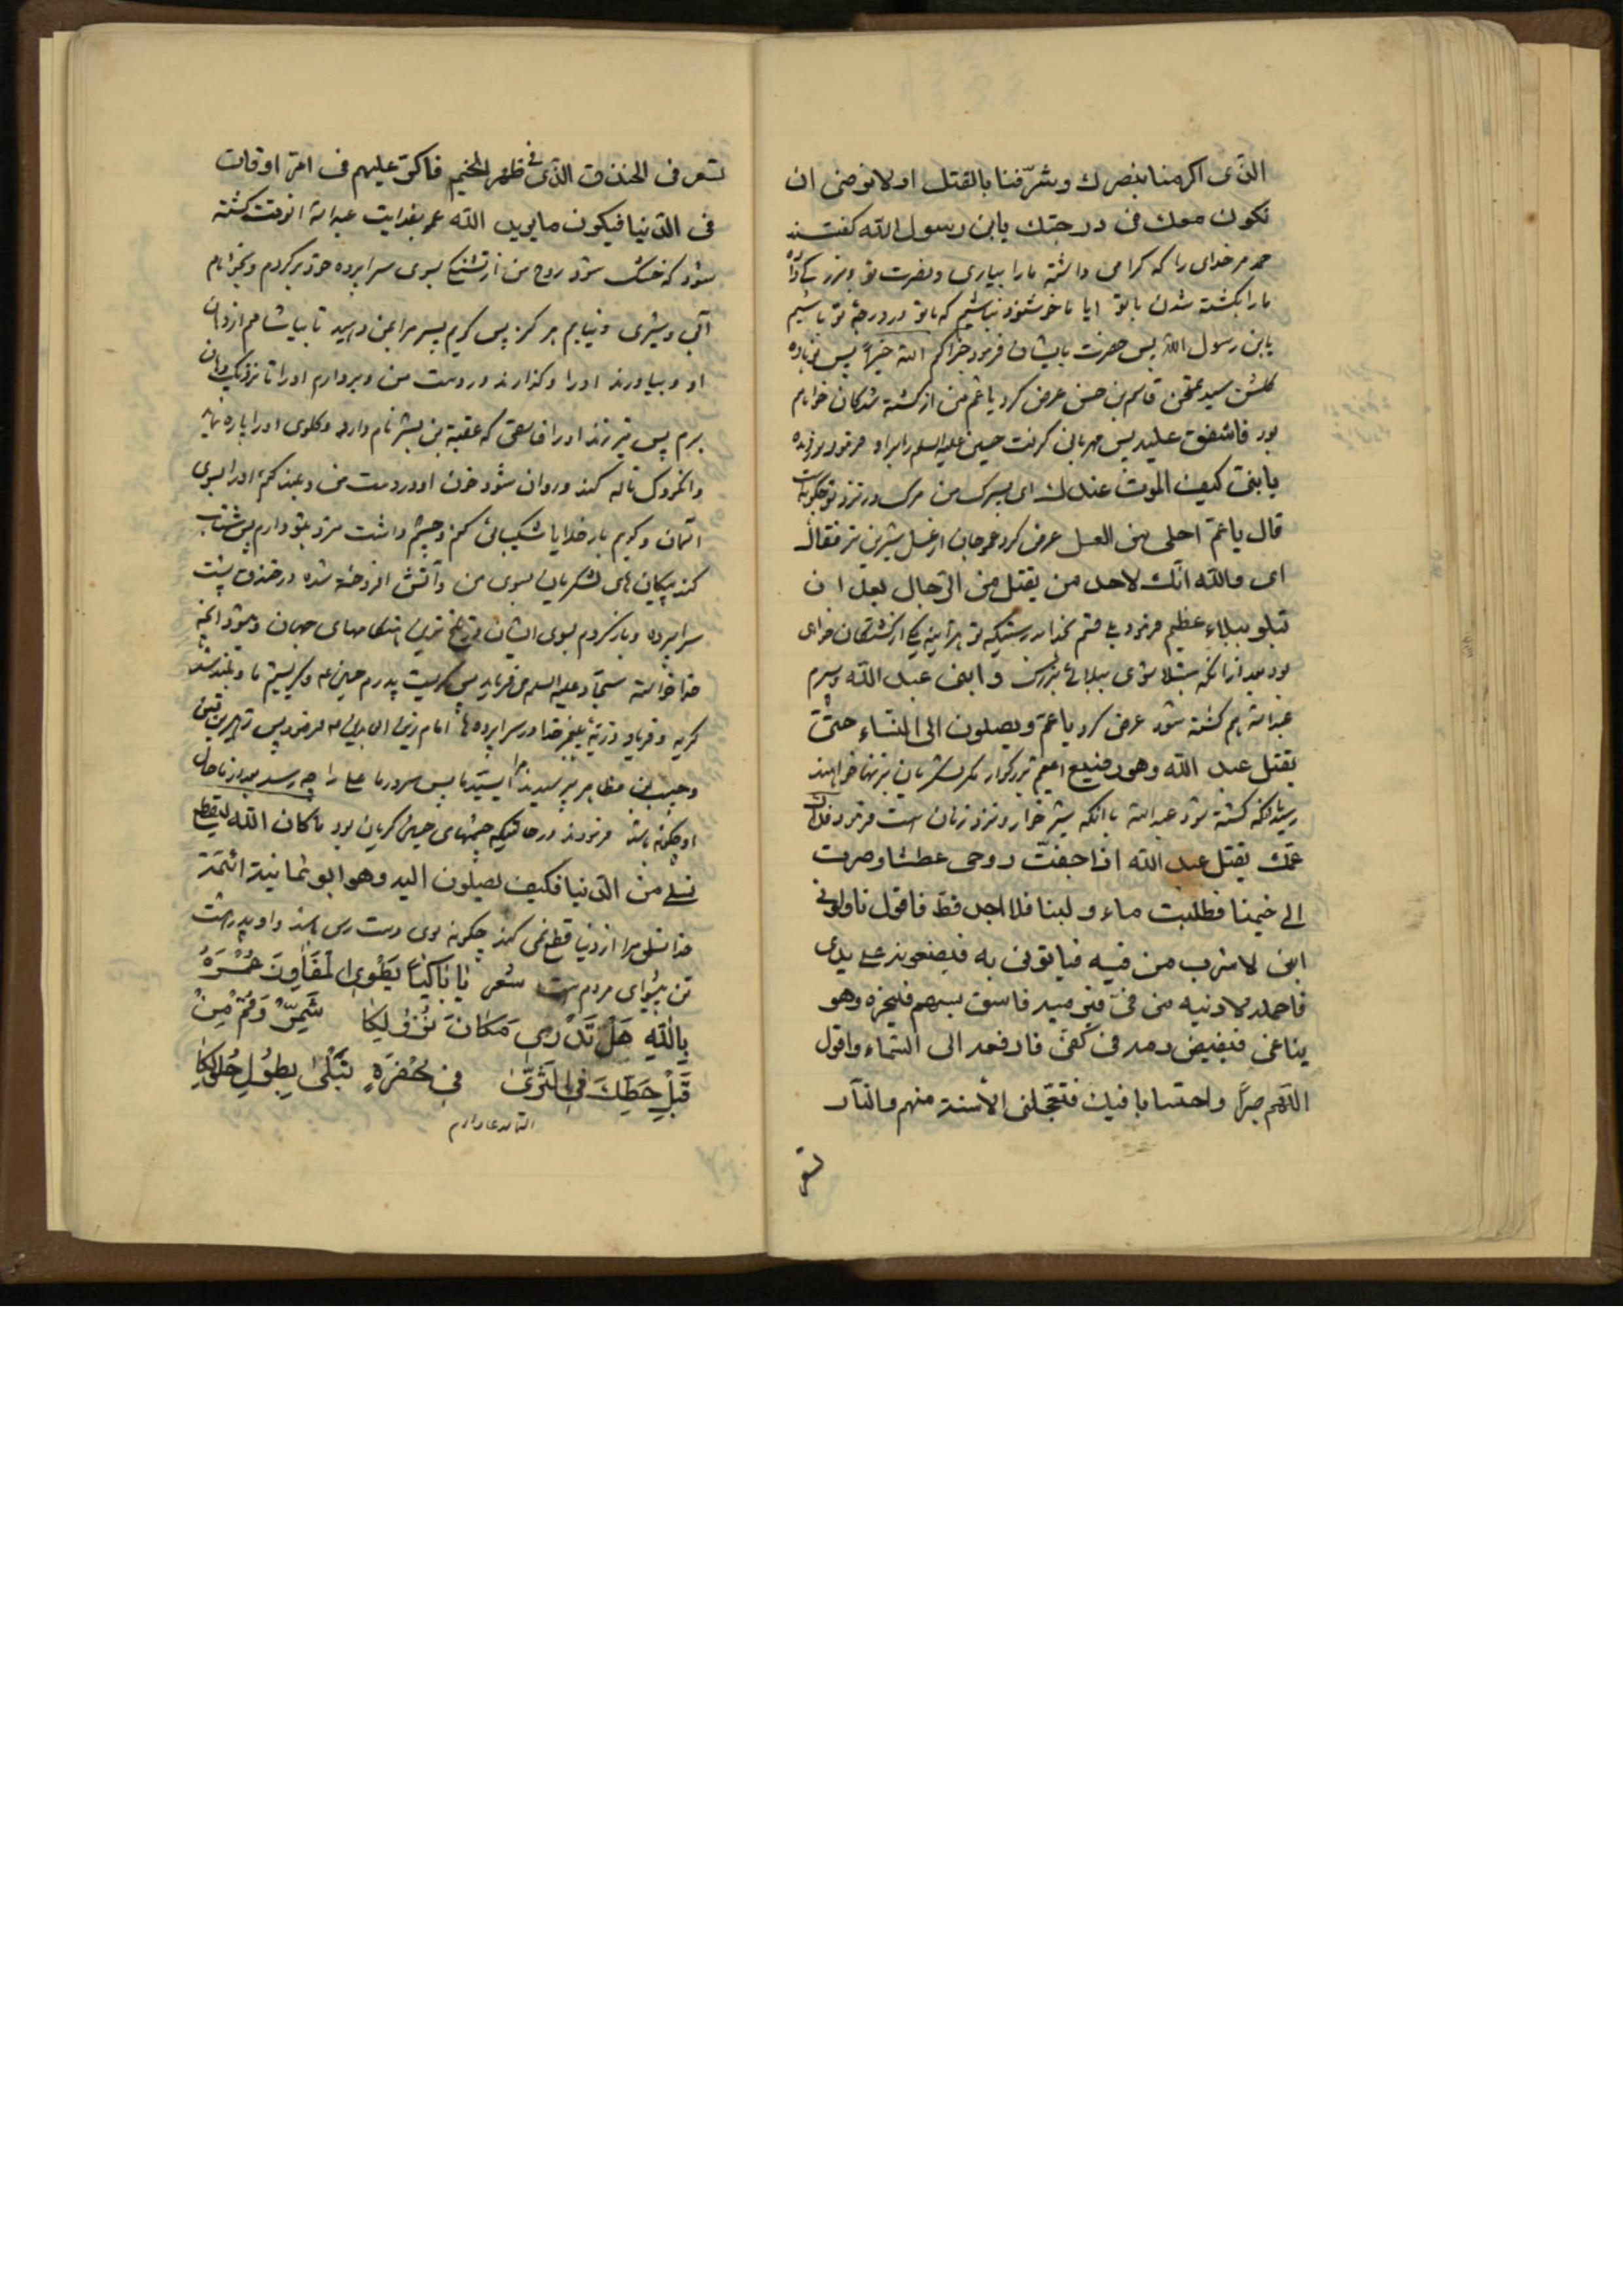 الذی اکرمنا بنصرك وشرّفنا بالقتل اولا نرضی ان
نکون معك فی درجتك یابن رسول الله کفتند
حمد مر خدای را که کرامی داشته ما را بیاری ونصرت تو
ما را بکشته شدن با تو ایا ما خوشنود نباشیم که با تو در درجهٔ تو باشیم
یابن رسول الله پس حضرت بایشان فرمود جزاکم الله خیراً پس نوباوه
کلشن سید ممتحن قاسم بن حسن عرض کرد یا عم من از کشته شدکان خواهم
بود فاشفق علیه پس مهربانی کرفت حسین علیه السلم را برا و فرمود
یا بنیّ کیف الموت عندك ای پسرك من مرك در نزد تو چکونه است
قال یا عمّ احلی من العسل عرض کرد عمو جان از عسل شیرین تر فقال
ای والله انّك لاحد من یقتل من الرّجال بعد ان
تبلو ببلاء عظیم فرمود بلی قسم بخدا بدرستیکه تو هراینه یکی از کشتکان خواهی
بود بعد از انکه مبتلا شوی ببلائی بزرك وابنی عبد الله وپسرم
عبدالله هم کشته شود عرض کرد یا عمّ ویصلون الی النساء حتّی
یقتل عبد الله وهو رضیع ای عم بزرکوار مکر لشکریان بزنها خواهند
رسید تا انکه کشته شود عبدالله با انکه شیر خوار ونزد زنان است فرمود فداك
عمّك یقتل عبد الله اذا جفّت روحی عطشا وصرت
الی خیمنا فطلبت ماء ولبنا فلا اجد قط فاقول ناولونی
ابنی لاشرب من فیه فیاتونی به فیضعونه علی یدی
فاحمله لادنیه من فیّ فیرمیه فاسق بسهم فینحره وهو
یناغی فیفیض دمه فی کفی فارفعه الی السّماء واقول
اللّهم صبراً واحتسابا فیك فتعجّلنی الاسنة منهم والنّار
تسعر
تسعر فی الخندق الذی فی ظهر الخیم فاکرّ علیهم فی امرّ اوقات
فی الدّنیا فیکون ما یرید الله عمو بفدایت عبدالله انوقت کشته
شود که خشك شود روح من از تشنکی بسوی سراپرده خود برکردم وبخواهم
آبی وشیری ونیابم هرکز پس کویم پسر مرا بمن دهید تا بیاشامم از دهان
او وبیاورند او را وکذارند در دست من وبردارم او را تا نزدیك دهان
برم پس تیر زند او را فاسقی که عقبة بن بشر نام دارد وکلوی او را پاره نماید
وانکودك ناله کند وروان شود خون او در دست من وبلند کنم او را بسوی
آسمان وکویم بار خدایا شکیبائی کنم وچشم داشت مزد بتو دارم پس شتاب
کند پیکان های لشکریان بسوی من وآتش افروخته شده در خندق پشت
سراپرده وبازکردم بسوی ایشان در تلخ ترین هنکامهای جهان ومیشود انچه
خدا خواسته سجاد علیه السلم می فرماید پس کریست پدرم حسین وکریستیم ما وبلند شد
کریه وفریاد ذریهٔ پیغمبر خدا در سراپرده ها امام زین العابدین فرمود پس زهیر بن قین
وحبیب بن مظاهر پرسیدند ای سید ما پس سرور ما علی را چه رسد بعد از ما حال
او چکونه باشد فرمودند در حالتیکه چشمهای حسین کریان بود ما کان الله لیقطع
نسلی من الدّنیا فکیف یصلون الیه وهو ابو ثمانیة ائمّة
خدا نسل مرا از دنیا قطع نمی کند چکونه بوی دست رس باشد واو پدر هشت
تن پیشوای مردم است شعر یا باکیاً یطوی المفاوز عمره
بالله هل تدری مکان نزولکا شمّر وقم من
قبل حطّك فی الثّری فی حفرة تبلی بطول حلولکا
التماس دعا دارم